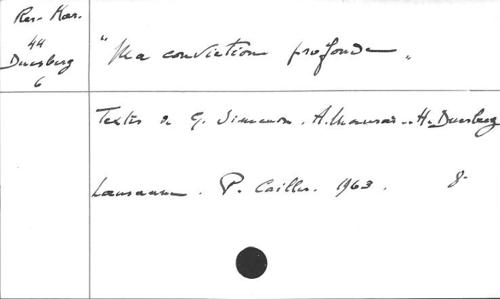 Res. Kar.
44
Duesberg
6
"Ma conviction profonde"
Textes de G. Simenon. A. Maurois. H. Duesberg
Lausanne. P. Cailler. 1963. 8°